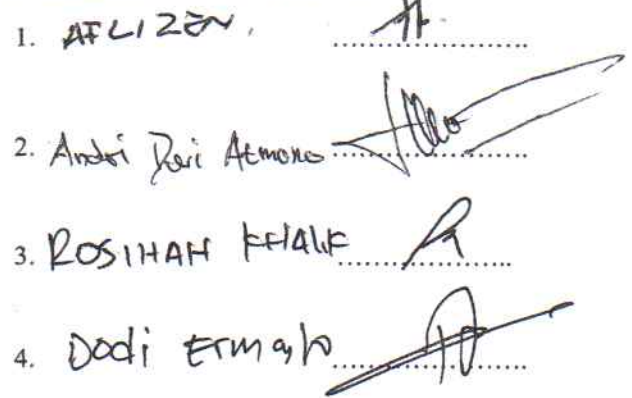 1. AFLIZEN. ....................
2. Andri Dwi Atmono ....................
3. ROSIHAN KHALIK ....................
4. Dodi Ermanto ....................